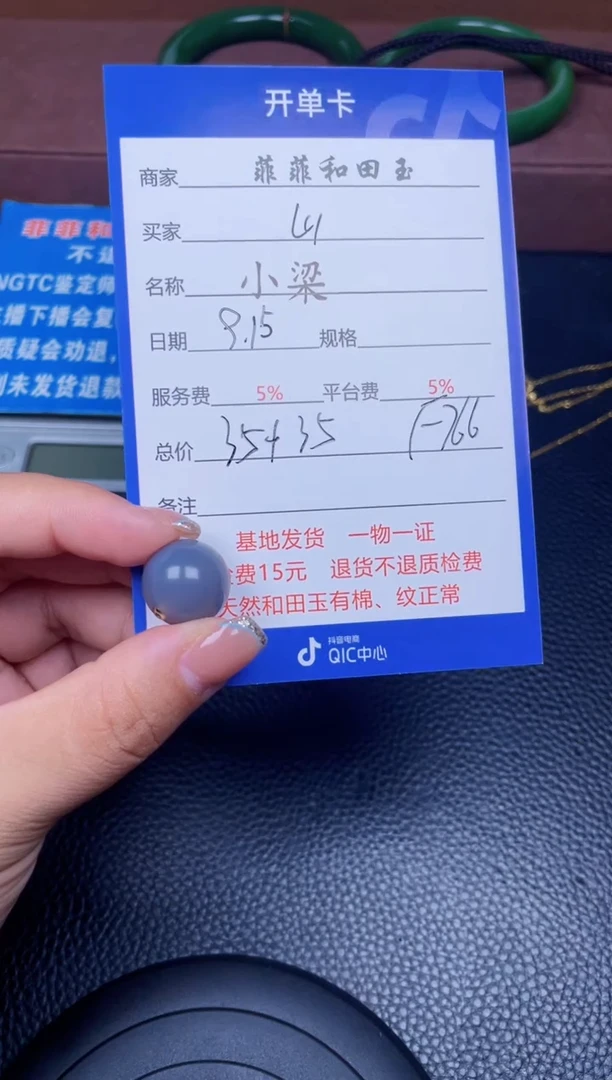 开单卡
商家 菲菲和田玉
买家
名称 小梁
日期 9.15 规格
服务费 5% 平台费 5%
总价 35+35
备注
基地发货 一物一证
费15元 退货不退质检费
天然和田玉有棉、纹正常
抖音电商
QIC中心
菲菲和
不退
NGTC鉴定师
播下播会复
质疑会劝退,
到未发货退款